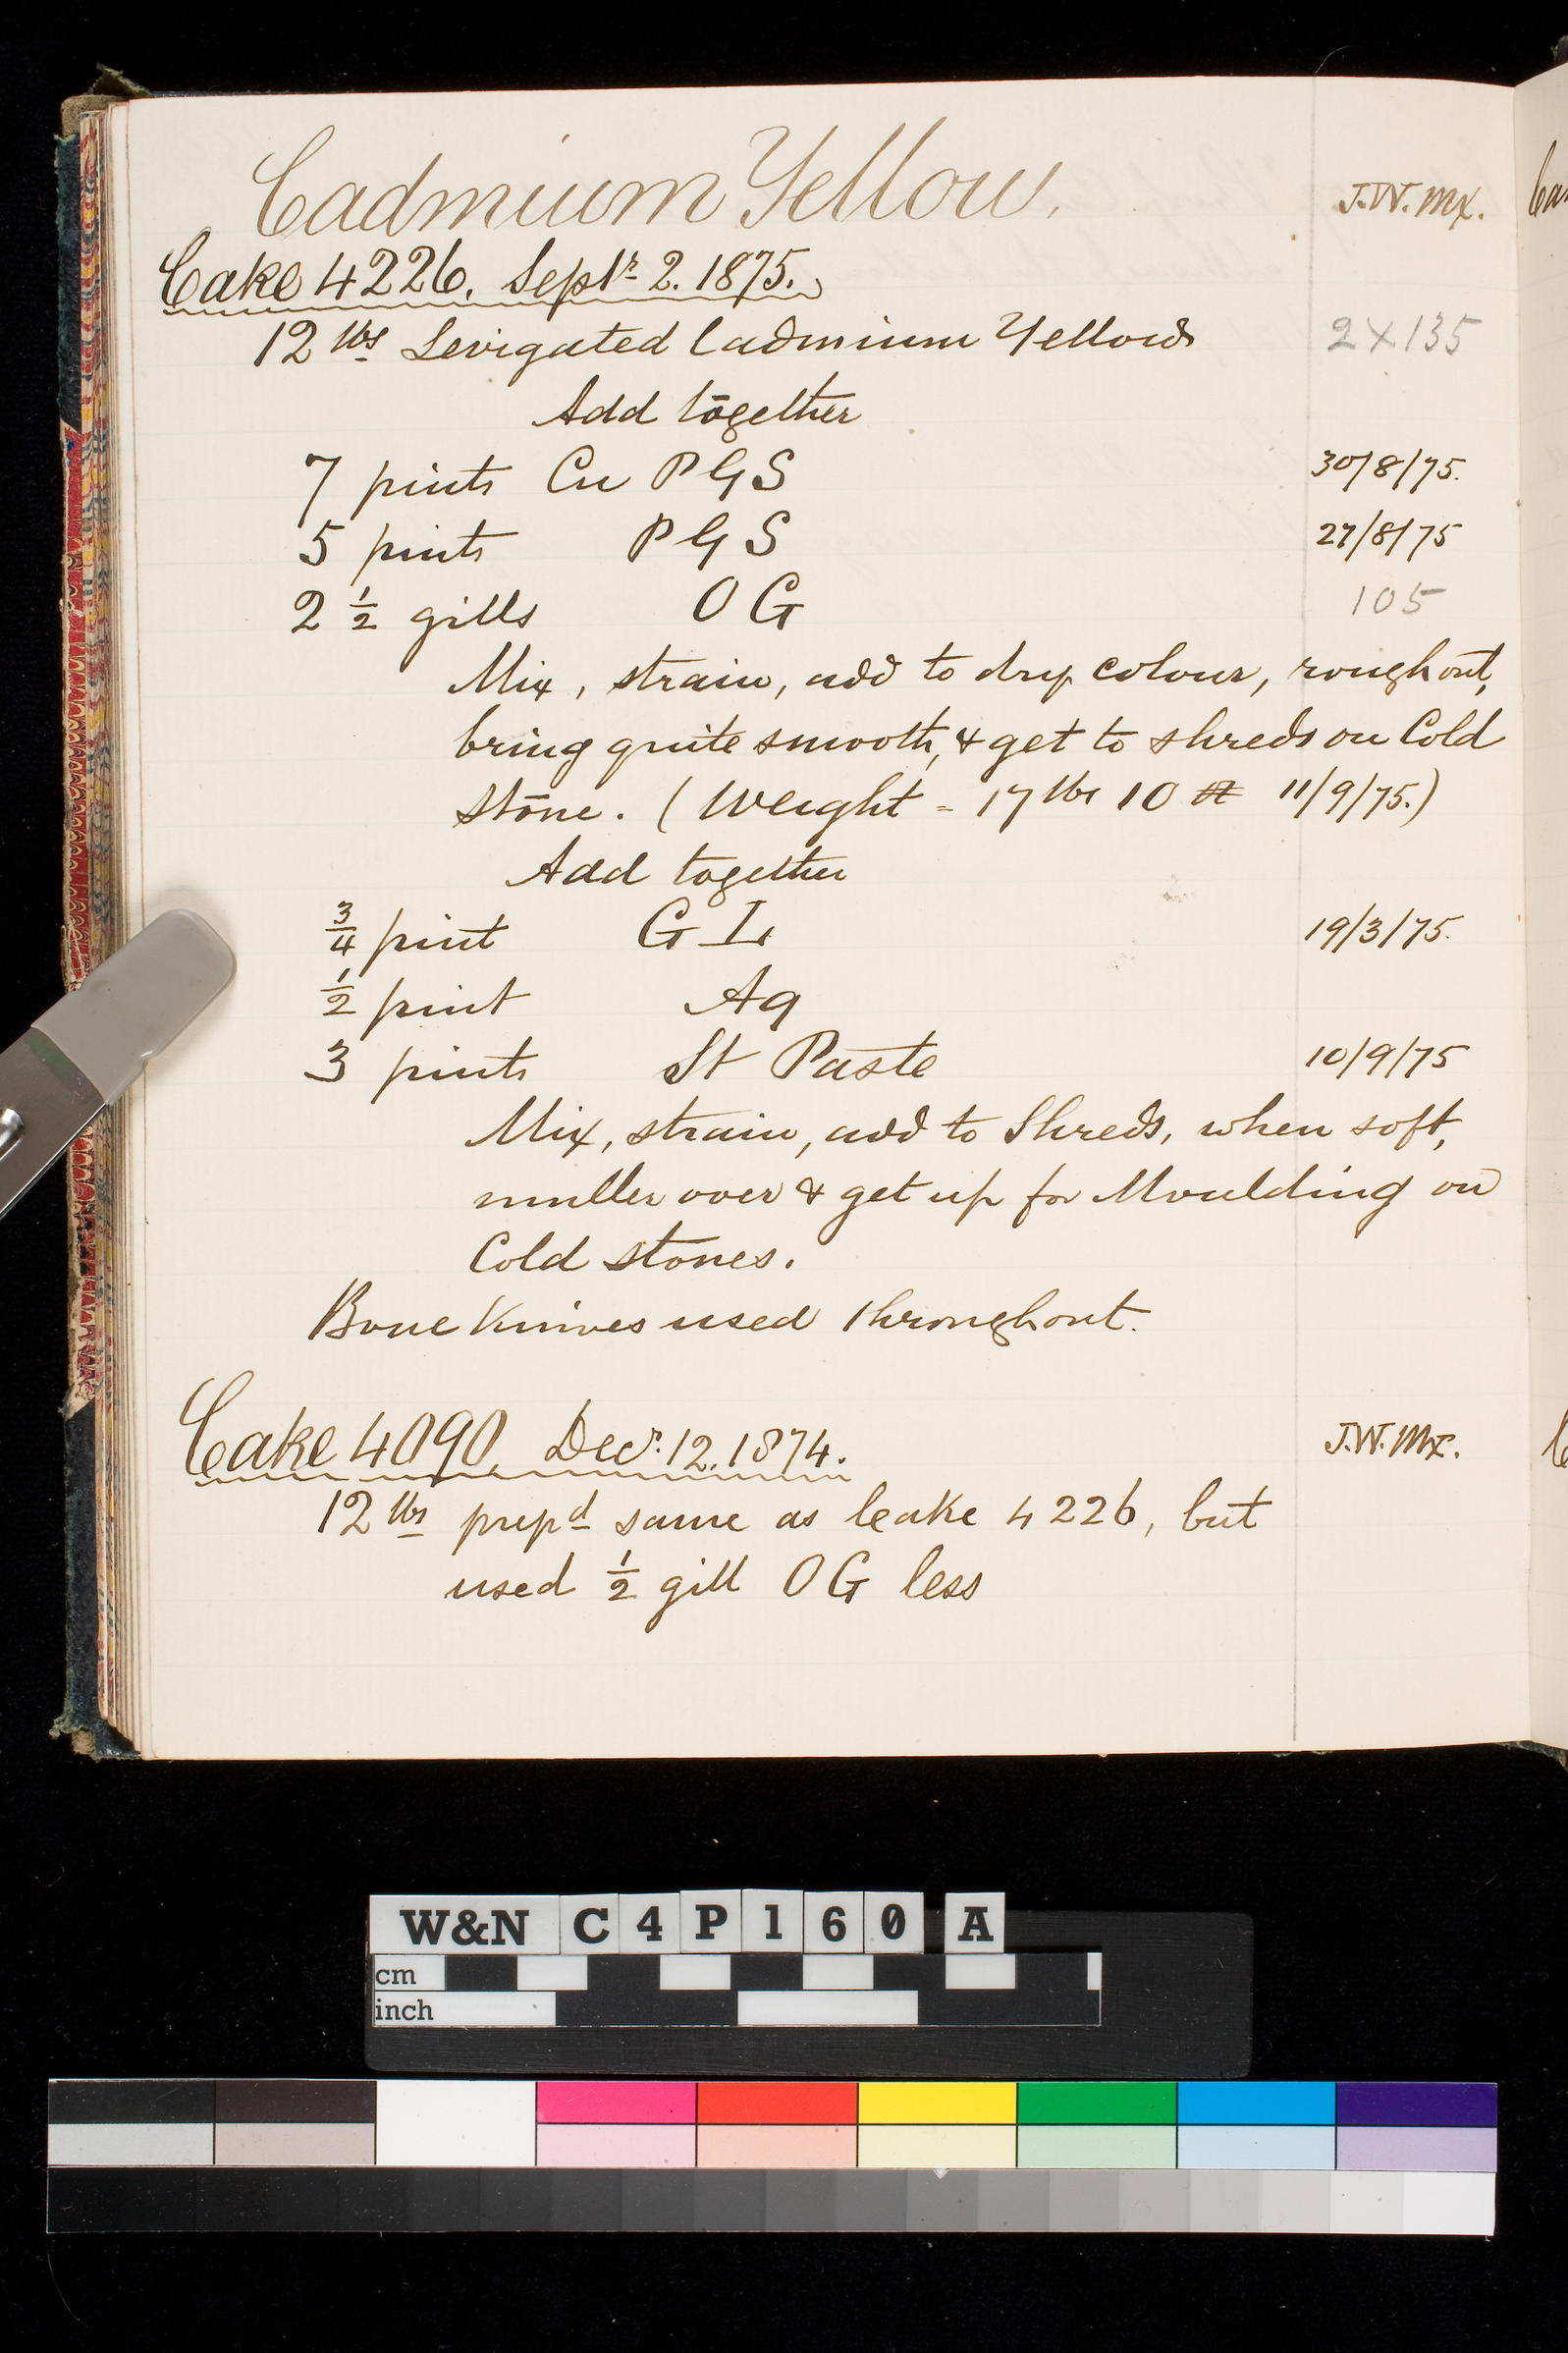 Cadmium Yellow. J.W. Mx.
Cake 4226. Septr. 2. 1875.
12 lbs Levigated Cadmium Yellow 2X135
Add together
7 pints Cu P G S 30/8/75.
5 pints P G S 27/8/75
2 1/2 gills O G 105
Mix, strain, add to dry colour, rough out,
bring quite smooth, & get to shreds on Cold
Stone. (Weight = 17 lbs 10 11/9/75.)
Add together
3/4 pint G L 19/3/75.
1/2 pint Aq
3 pints St Paste 10/9/75
Mix, strain, add to Shreds, when soft,
muller over & get up for Moulding on
Cold stones.
Bone Knives used throughout.
Cake 4090. Decr. 12. 1874. J.W. Mx.
12 lbs prepd same as Cake 4226, but
used 1/2 gill O G less
W&N C4P160 A
cm
inch